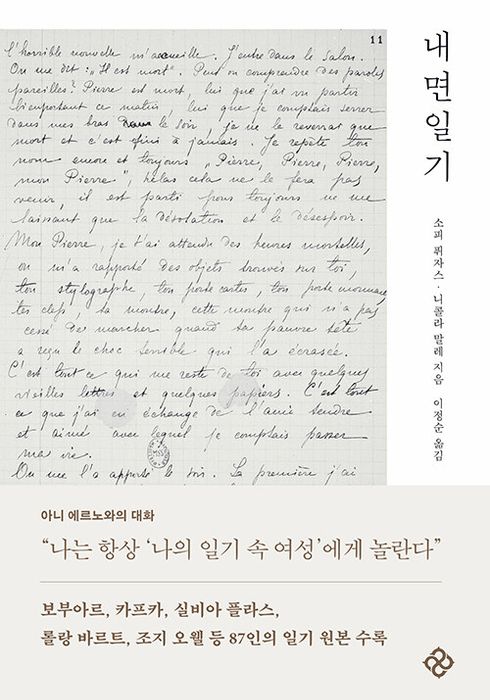 11
l'horrible nouvelle m'accueille. J'entre dans le salon.
On me dit : „Il est mort". Peut on comprendre des paroles
pareilles? Pierre est mort, lui que j'ai vu partir
bien portant ce matin, lui que je comptais serrer
dans mes bras le soir, je ne le reverrai que
mort et c'est fini à jamais. Je répète ton
nom encore et toujours „Pierre, Pierre, Pierre,
mon Pierre", hélas cela ne le fera pas
venir, il est parti pour toujours ne me
laissant que la désolation et le désespoir.
Mon Pierre, je t'ai attendu des heures mortelles,
on m'a rapporté des objets trouvés sur toi,
ton stylographe, ton porte cartes, ton porte monnaie,
tes clefs, ta montre, cette montre qui n'a pas
cessé de marcher quand ta pauvre tête
a reçu le choc terrible qui l'a écrasée.
C'est tout ce qui me reste de toi avec quelques
vieilles lettres et quelques papiers. C'est tout
ce que j'ai en échange de l'ami tendre
et aimé avec lequel je comptais passer
ma vie.
On me l'a apporté le soir. La première j'ai
내면일기
소피 퓌자스 · 니콜라 말레 지음
이정순 옮김
아니 에르노와의 대화
“나는 항상 ‘나의 일기 속 여성’에게 놀란다”
보부아르, 카프카, 실비아 플라스,
롤랑 바르트, 조지 오웰 등 87인의 일기 원본 수록